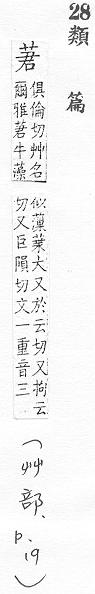 28
類篇
莙
俱倫切艸名
爾雅莙牛藻
似薻葉大又於云切又拘云
切又巨隕切文一重音三
(艸部、p.19)